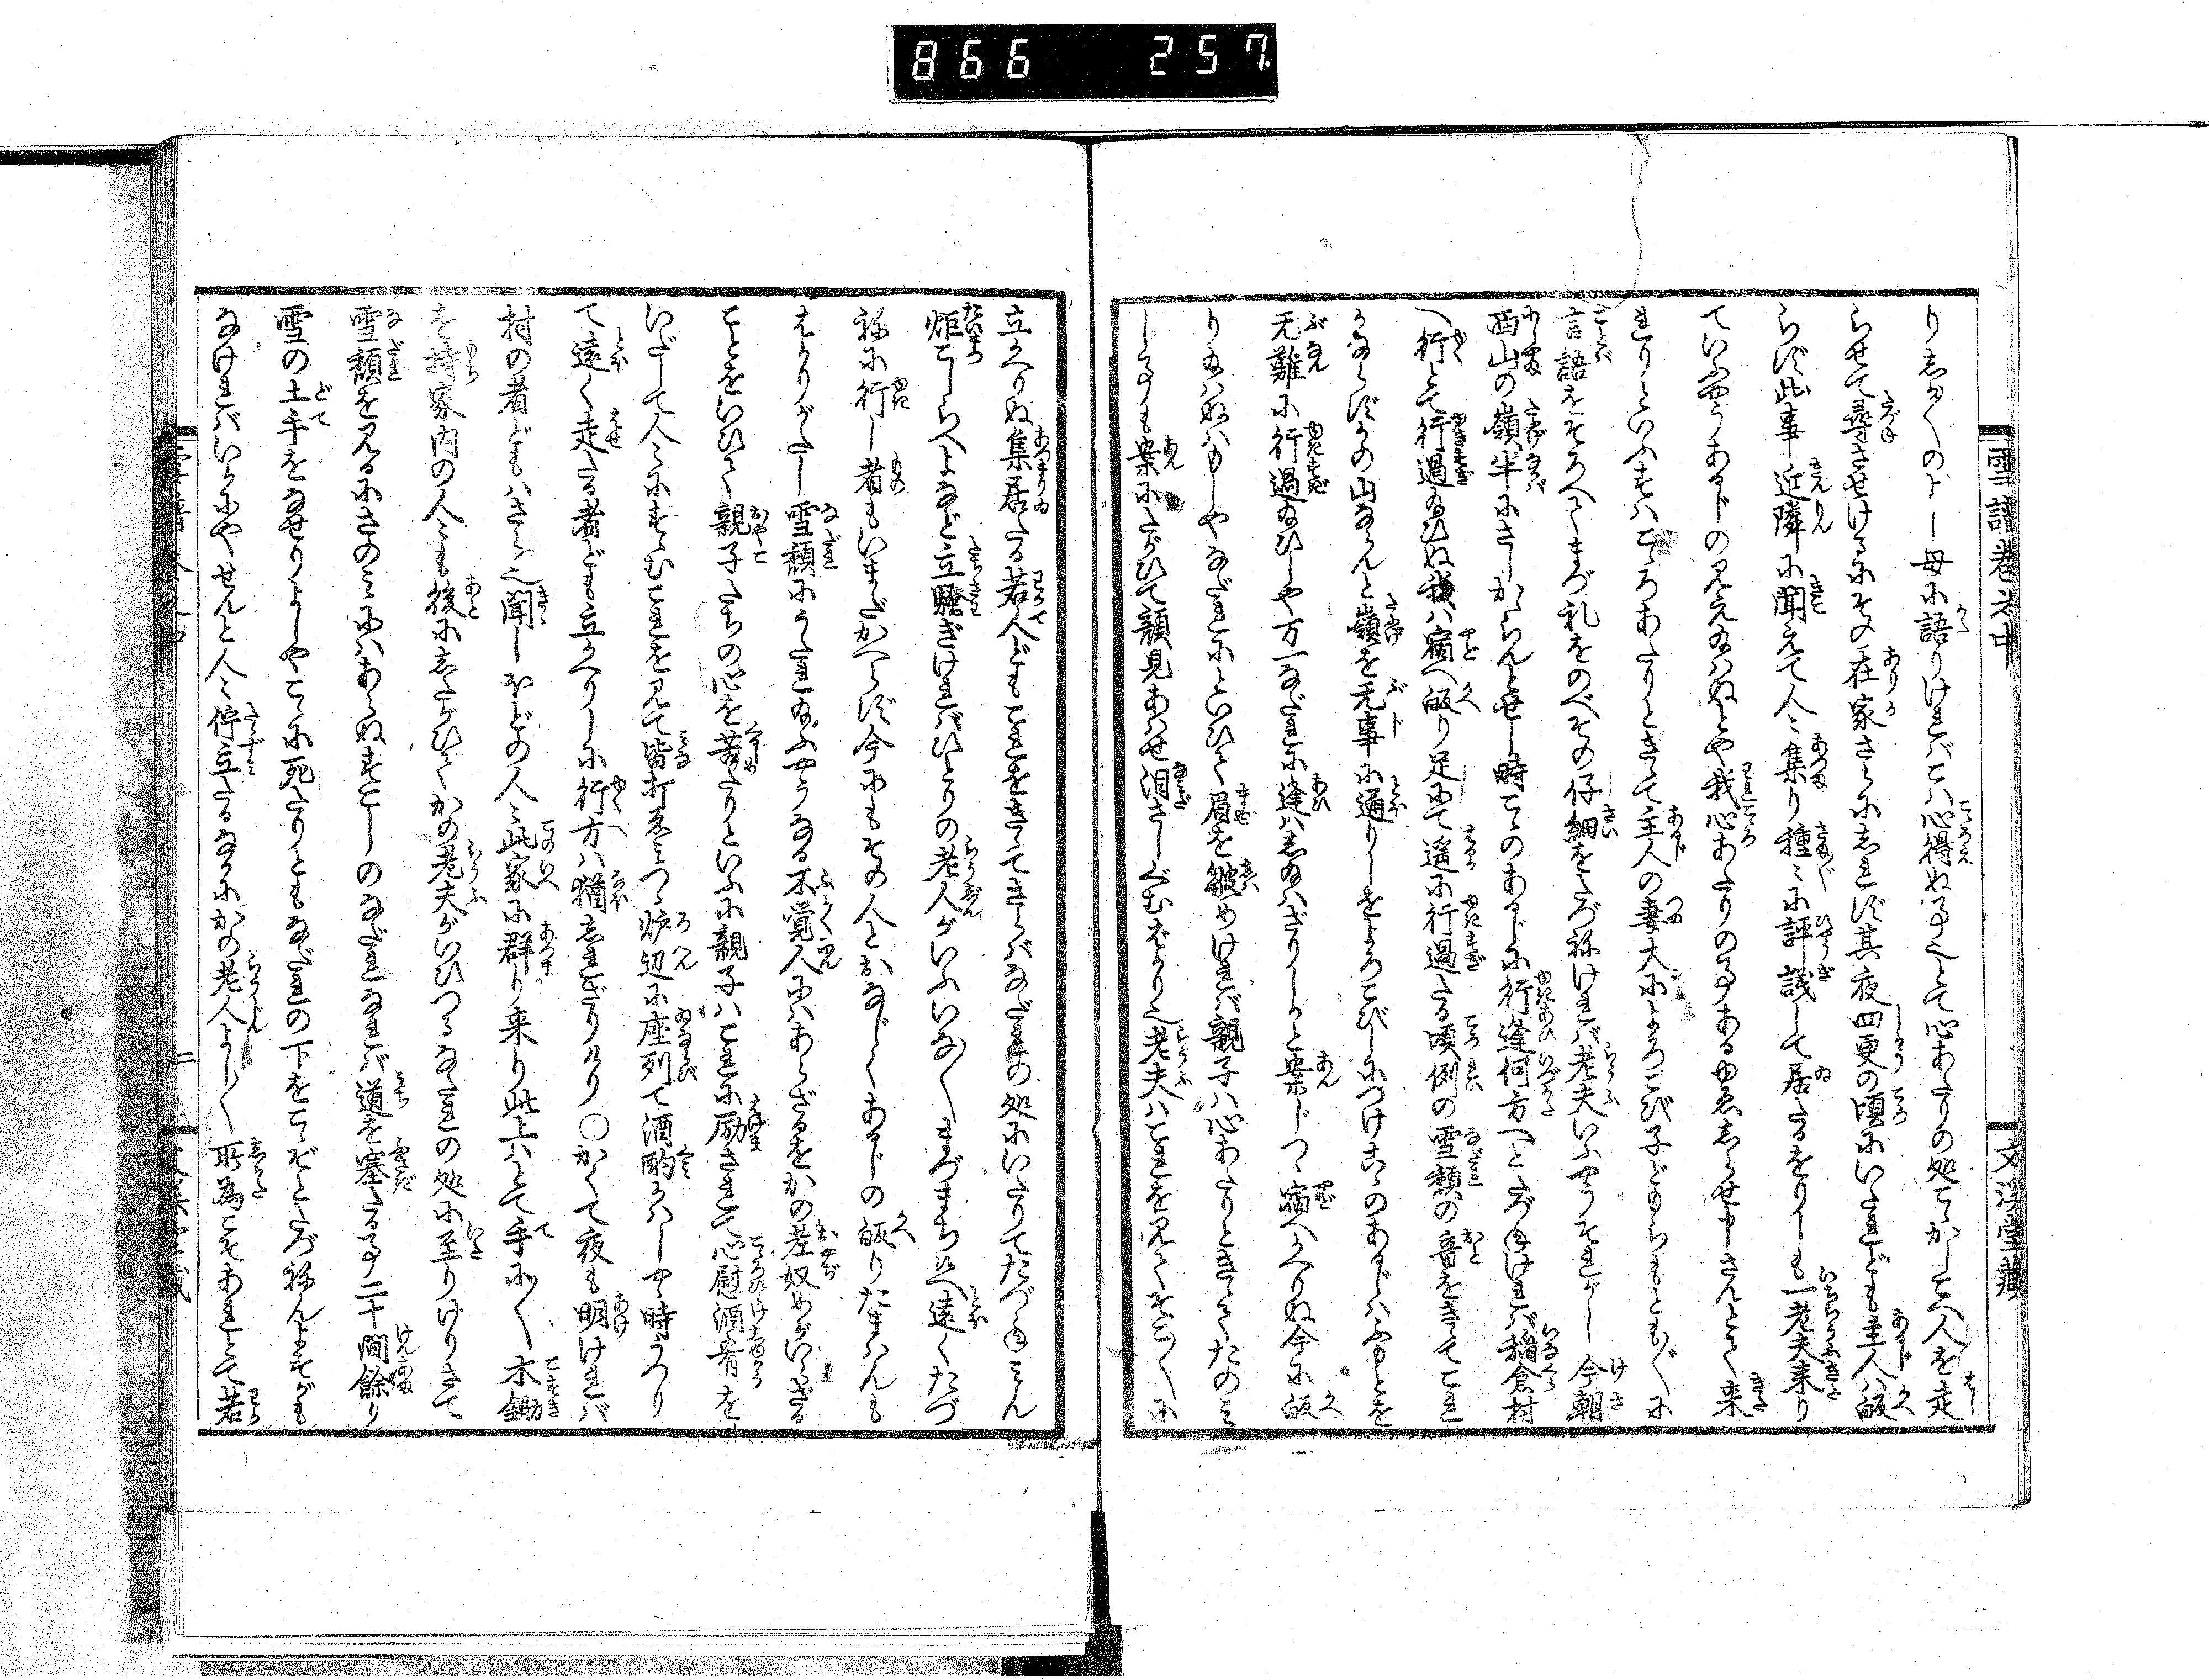 雪譜巻之中　文渓堂蔵
りしか〳〵のよし母に語りければこは心得ぬ事也とて心あたりの処こゝかしこへ人を走
らせて尋させけるにその在家さらにしれず其夜四更の頃にいたれども主人は皈
らず此事近隣に聞えて人々集り種々に評議して居たるをりしも一老夫来り
ていふやうあるじの見え給はぬとや我心あたりの事あるゆゑしらせ申さんとて来
れりといふすはこゝろあたりときゝて主人の妻大によろこび子どもらもとも〴〵に
言語をそろへてまづ礼をのべその仔細をたづねければ老夫いふやうそれがし今朝
西山の嶺半にさしかゝらんとせし時こゝのあるじに行逢何方へとたづねければ稲倉村
へ行とて行過給ひぬ我は宿へ皈り足にて遥に行過たる頃例の雪頽の音をきゝてこれ
かならずかの山ならんと嶺を无事に通りしをよろこびしにつけこゝのあるじはふもとを
无難に行過給ひしや万一なだれに逢はし給はざりしかと案じつゝ宿へかへりぬ今に皈
り給はぬはもしやなだれにといひて眉を皺めければ親子は心あたりときゝてたのみ
し事も案にたがひて顔見あはせ泪さしぐむばかり也老夫はこれを見てそこ〳〵に
立かへりぬ集居たる若人どもこれをきゝてさらばなだれの処にいたりてたづねみん
炬こしらへよなど立騒ぎければひとりの老人がいふいな〳〵まづまち候へ遠くたづ
ねに行し者もいまだかへらず今にもその人とおなじくあるじの皈りたまはんも
はかりがたし雪頽にうたれ給ふやうなる不覚人にはあらざるをかの老奴めがいらざる
ことをいひて親子たちの心を苦めたりといふに親子はこれに励されて心慰酒肴を
いだして人々にすゝむこれを見て皆打ゑみつゝ炉辺に座列て酒酌かはしやゝ時うつり
て遠く走たる者ども立かへりしに行方は猶しれざりけり○かくて夜も明ければ
村の者どもはさら也聞しほどの人々此家に群り来り此上はとて手に〳〵木鋤
を持家内の人々も後にしたがひてかの老夫がいひつるなだれの処に至りけりさて
雪頽を見るにさのみにはあらぬすこしのなだれなれば道を塞たる事二十間餘り
雪の土手をなせりよしやこゝに死たりともなだれの下をこゝぞとたづねんよすがも
なければいかにやせんと人々停立たるなかにかの老人よし〳〵所為こそあれとて若